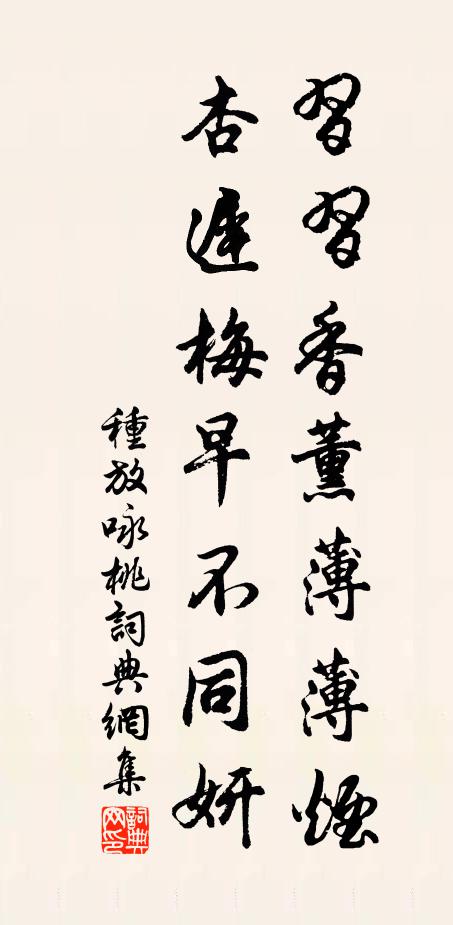 習習香薰薄薄煙
杏遲梅早不同妍
種放咏桃詞典網集
詞典網印